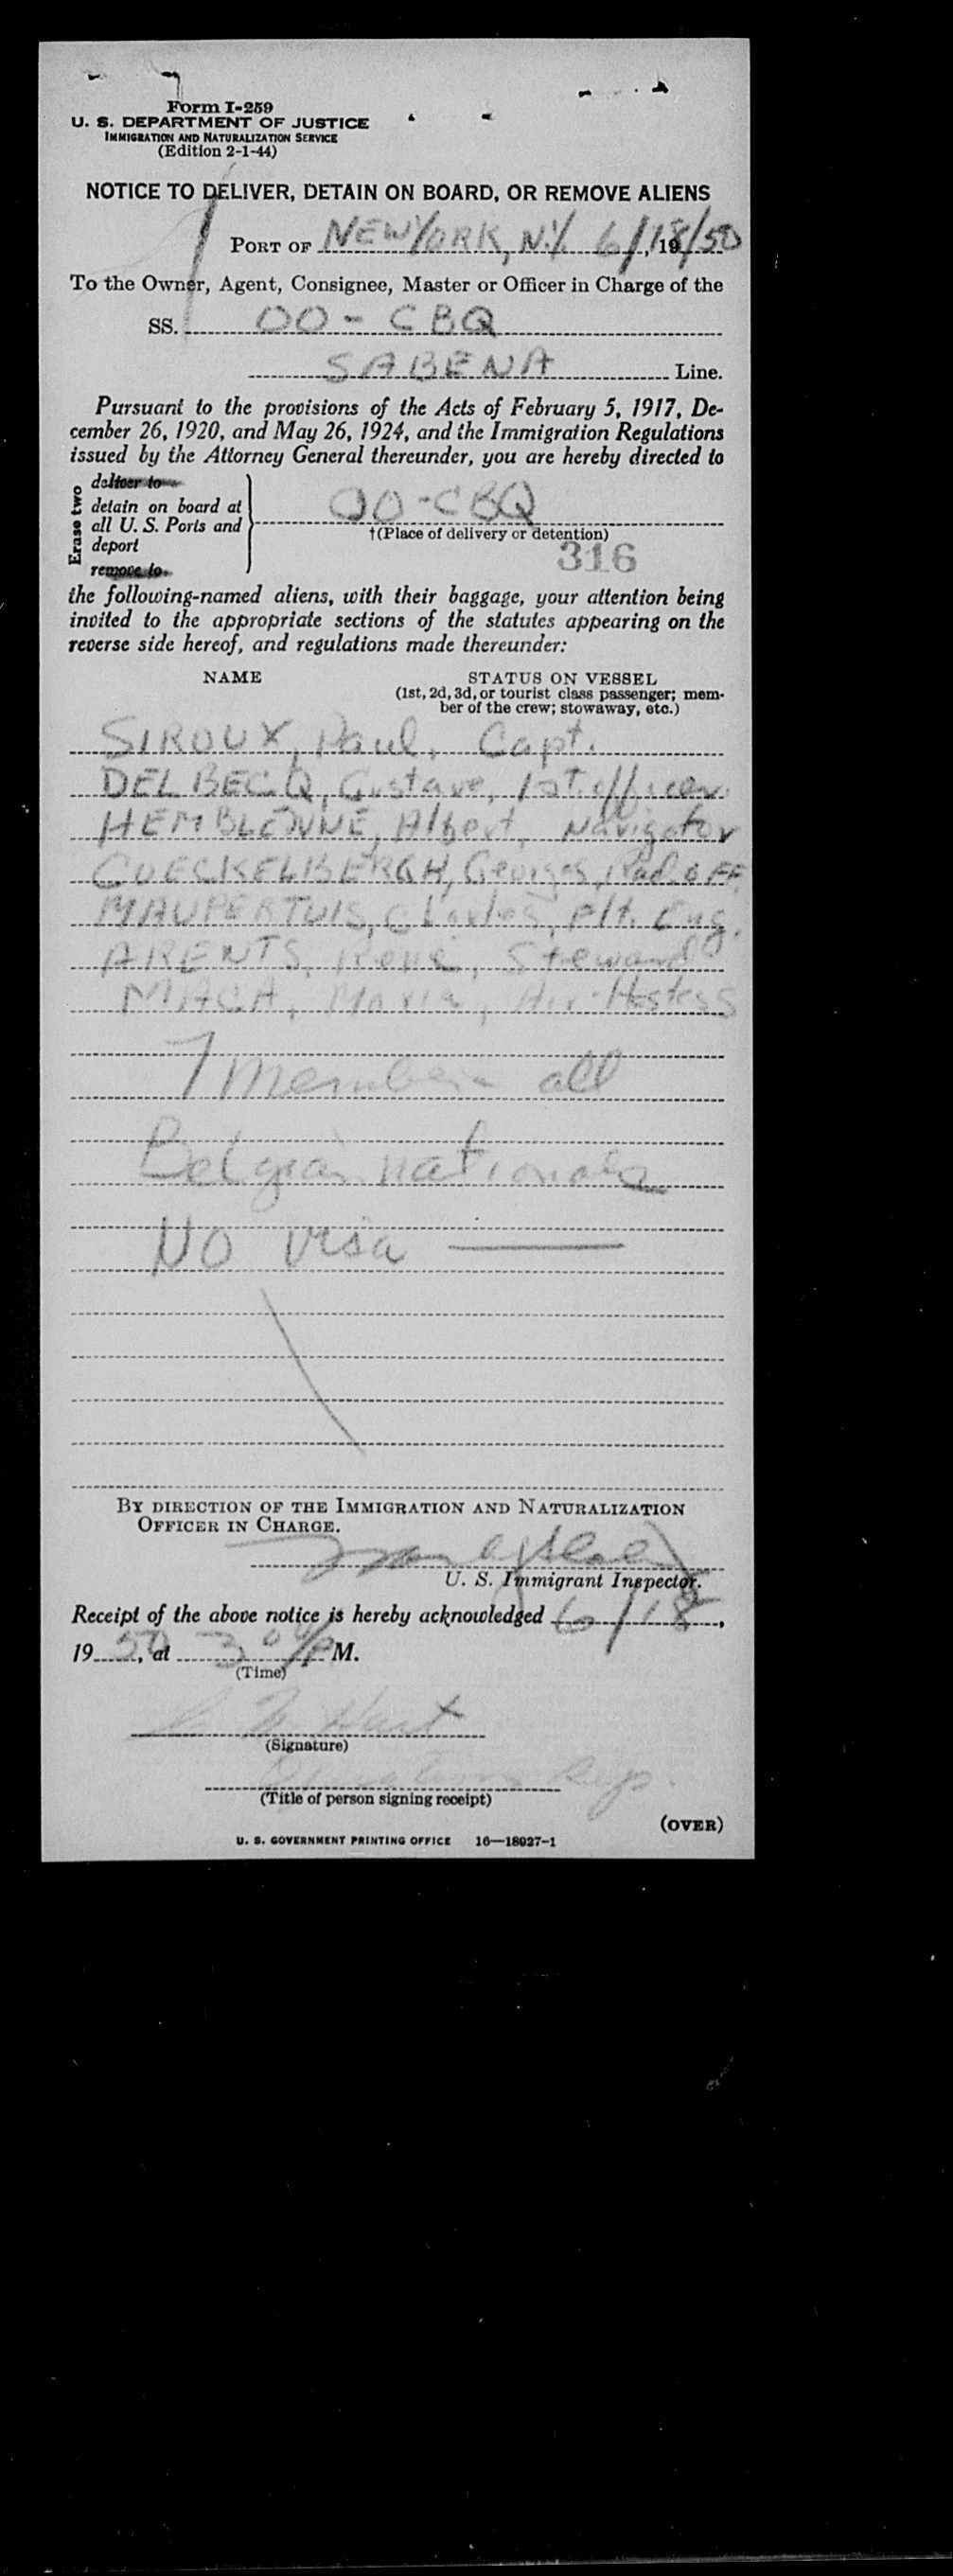 Form I-259
U. S. DEPARTMENT OF JUSTICE
IMMIGRATION AND NATURALIZATION SERVICE
(Edition 2-1-44)
NOTICE TO DELIVER, DETAIN ON BOARD, OR REMOVE ALIENS
PORT OF NEW YORK, N.Y. 6/18/50, 19
To the Owner, Agent, Consignee, Master or Officer in Charge of the
SS. OO-CBQ
SABENA Line.
Pursuant to the provisions of the Acts of February 5, 1917, De-
cember 26, 1920, and May 26, 1924, and the Immigration Regulations
issued by the Attorney General thereunder, you are hereby directed to
Erase two
deliver to
detain on board at
all U. S. Ports and
deport
remove to
OO-CBQ
†(Place of delivery or detention)
316
the following-named aliens, with their baggage, your attention being
invited to the appropriate sections of the statutes appearing on the
reverse side hereof, and regulations made thereunder:
NAME STATUS ON VESSEL
(1st, 2d, 3d, or tourist class passenger; mem-
ber of the crew; stowaway, etc.)
SIROUX, Paul, Capt.
DELBECQ, Gustave, 1st. officer
HEMBLENNE, Albert, Navigator
COECKELBERGH, Georges, Radio FF
MAUPERTUIS, Charles, Flt. Eng.
ARENTS, René, Steward
MACA, Maria, Air-Hostess
7 members all
Belgian nationals
No visa
BY DIRECTION OF THE IMMIGRATION AND NATURALIZATION
OFFICER IN CHARGE.
U. S. Immigrant Inspector.
Receipt of the above notice is hereby acknowledged 6/18,
19 50, at 3 00 P M.
(Time)
Hart
(Signature)
Rep.
(Title of person signing receipt)
(OVER)
U. S. GOVERNMENT PRINTING OFFICE 16—18027-1